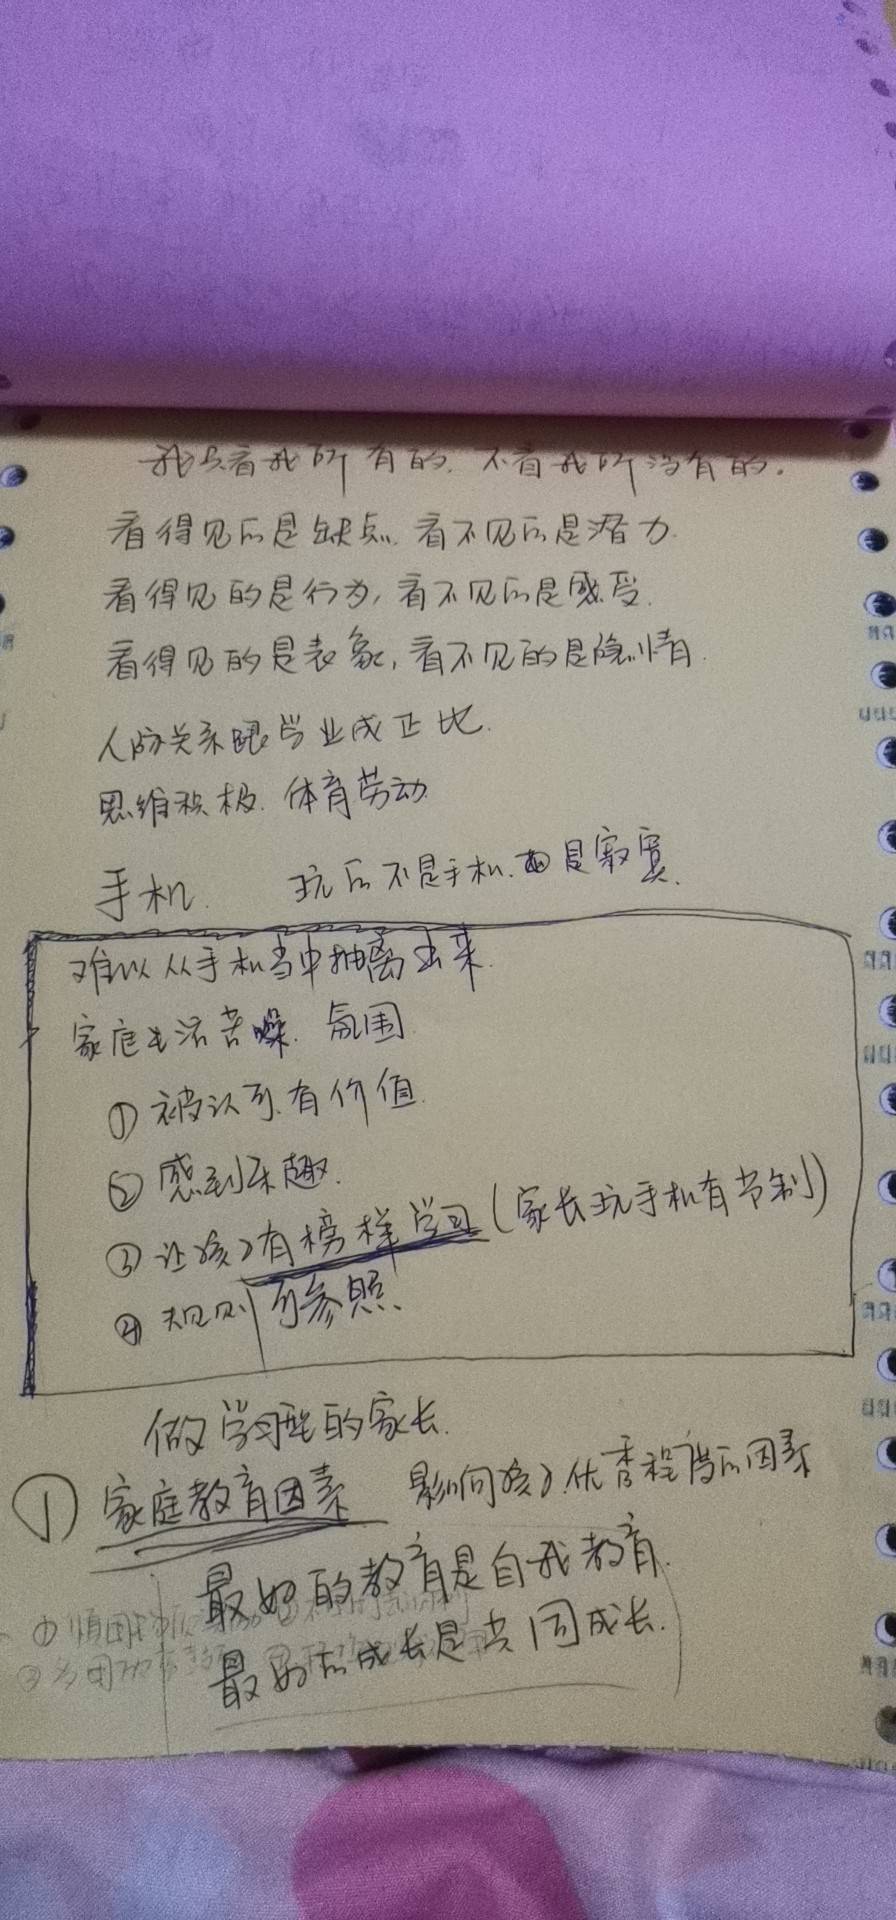 我只看我所有的.不看我所没有的.
看得见的是缺点.看不见的是潜力.
看得见的是行为,看不见的是感受.
看得见的是表象,看不见的是隐情.
人际关系跟学业成正比.
思维积极.体育劳动.
手机. 玩的不是手机.而是寂寞.
难以从手机当中抽离出来.
家庭生活苦燥.氛围
①被认可.有价值.
②感到乐趣.
③让孩子有榜样学习(家长玩手机有节制)
④规则可参照.
做学习型的家长.
① 家庭教育因素 影响孩子优秀程度的因素
最好的教育是自我教育.
最好的成长是共同成长.